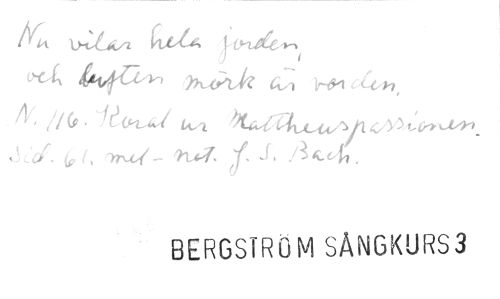 Nu vilar hela jorden,
och luften mörk är vorden.
N. 116. Koral ur Mattheuspassionen.
Sid. 61. mel - not. J. S. Bach.
BERGSTRÖM SÅNGKURS 3